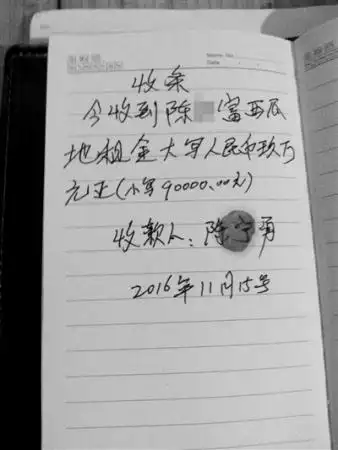 Date
收条
今收到陈 富西瓜
地租金大写人民币玖万
元正(小写90000.00元)
收款人:陈 勇
2016年11月15号